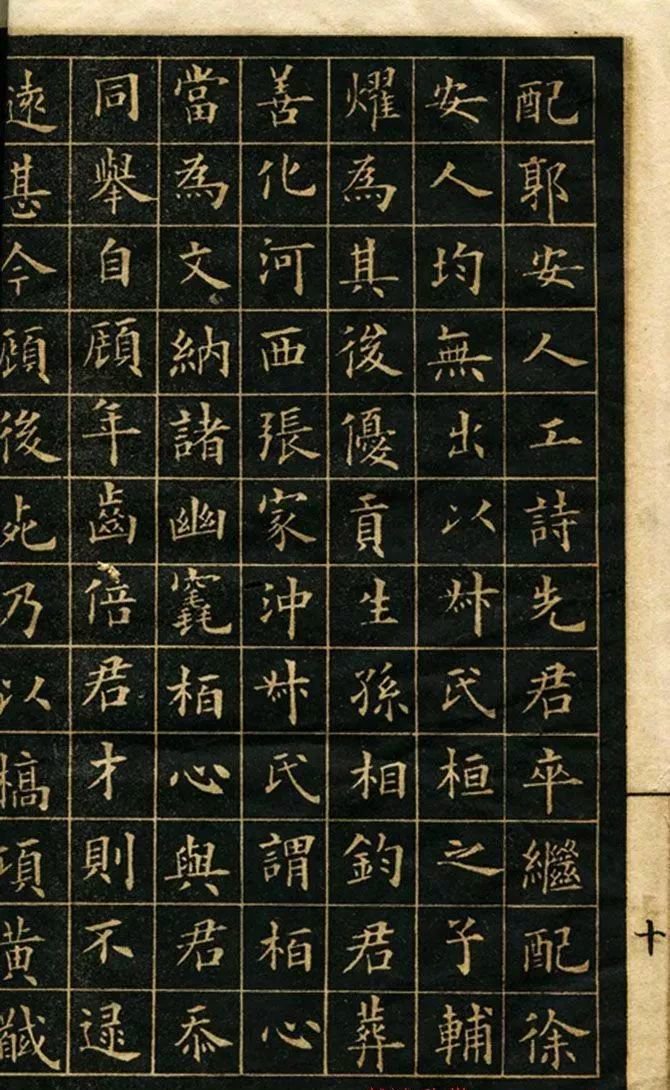 配郭安人工詩先君卒繼配徐
安人均無出以叔氏桓之子輔
燿爲其後優貢生孫相鈞君葬
善化河西張家沖叔氏謂栢心
當為文納諸幽竁栢心與君忝
同舉自顧年齒倍君才則不逮
遠甚今顧後死乃以槁項黃馘
十